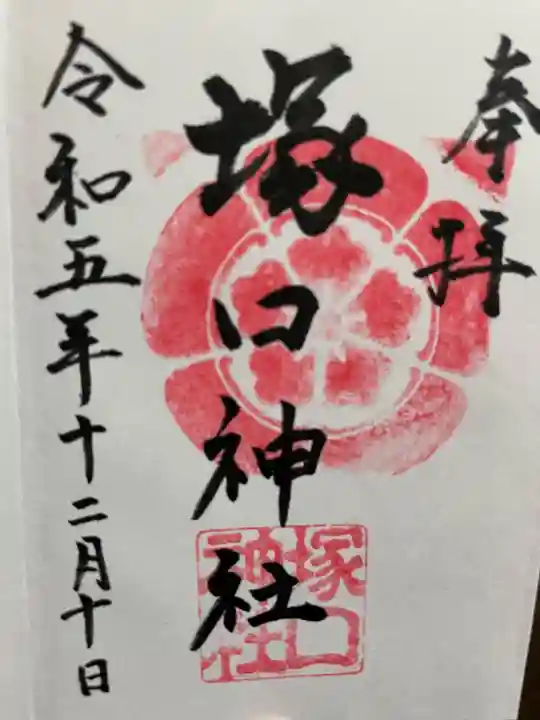 奉拝
塚口神社
令和五年十二月十日
塚口
神社